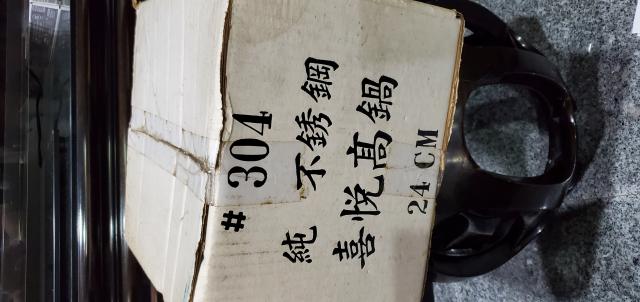 # 304
純不銹鋼
喜悅高鍋
24 CM